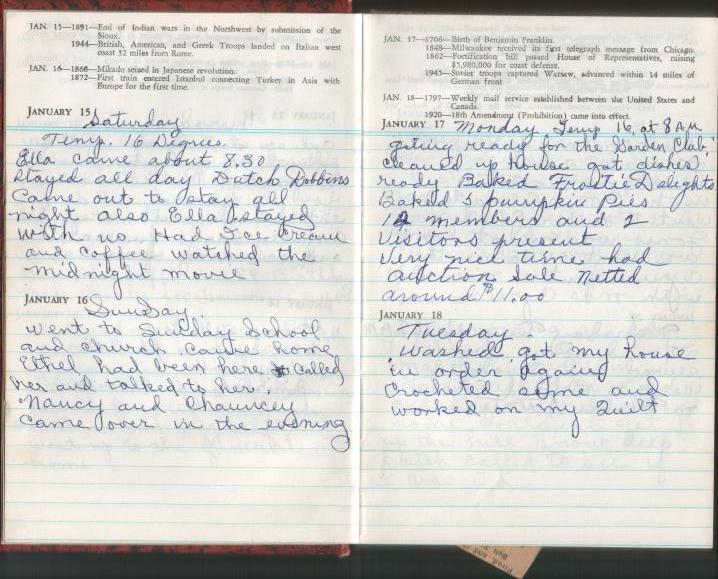 JAN. 15—1891—End of Indian wars in the Northwest by submission of the
Sioux.
1944—British, American, and Greek Troops landed on Italian west
coast 32 miles from Rome.
JAN. 16—1868—Mikado seized in Japanese revolution.
1872—First train entered Istanbul connecting Turkey in Asia with
Europe for the first time.
JANUARY 15
Saturday
Temp. 16 Degrees.
Ella came about 8.30
stayed all day Dutch Dobbins
came out to stay all
night also Ella stayed
with us. Had Ice cream
and coffee watched the
midnight movie
JANUARY 16
Sunday
went to Sunday School
and church came home
Ethel had been here called
her and talked to her.
Nancy and Chauncey
came over in the evening
JAN. 17—1706—Birth of Benjamin Franklin.
1848—Milwaukee received its first telegraph message from Chicago.
1862—Fortification bill passed House of Representatives, raising
$5,980,000 for coast defense.
1945—Soviet troops captured Warsaw, advanced within 14 miles of
German front.
JAN. 18—1797—Weekly mail service established between the United States and
Canada.
1920—18th Amendment (Prohibition) came into effect.
JANUARY 17 Monday Temp 16 at 8 AM
getting ready for the Garden Club
cleaned up house got dishes
ready Baked Frostie Delights
Baked 3 pumpkin Pies
members and 2
visitors present
very nice time had
auction sale netted
around $11.00
JANUARY 18
Tuesday
washed got my house
in order again
crocheted some and
worked on my Quilt